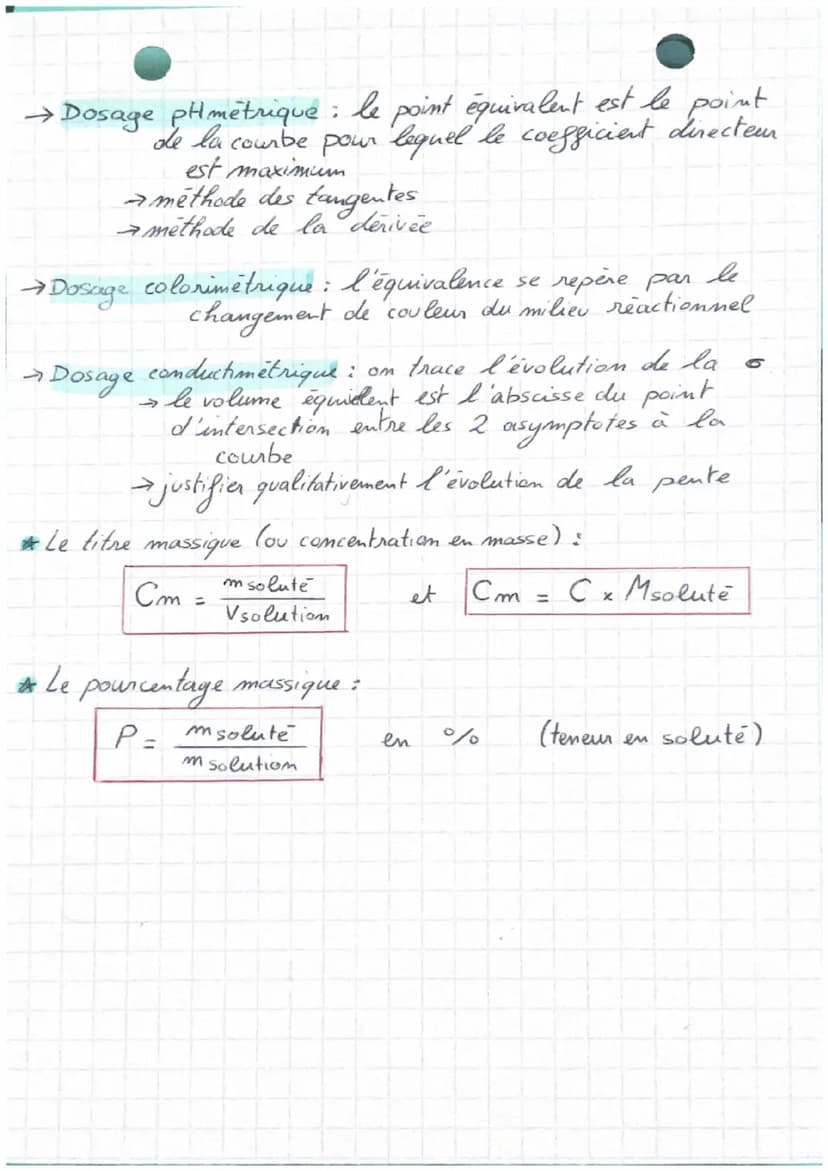 → Dosage pHmétrique : le point équivalent est le point
de la courbe pour lequel le coefficient directeur
est maximum
→ méthode des tangentes
→ méthode de la dérivée
→ Dosage colorimétrique : l'équivalence se repère par le
changement de couleur du milieu réactionnel
→ Dosage conductimétrique : on trace l'évolution de la σ
→ le volume équivalent est l'abscisse du point
d'intersection entre les 2 asymptotes à la
courbe
→ justifier qualitativement l'évolution de la pente
* Le titre massique (ou concentration en masse) :
Cm = m soluté / V solution et Cm = C x M soluté
* Le pourcentage massique :
P = m soluté / m solution en % (teneur en soluté)